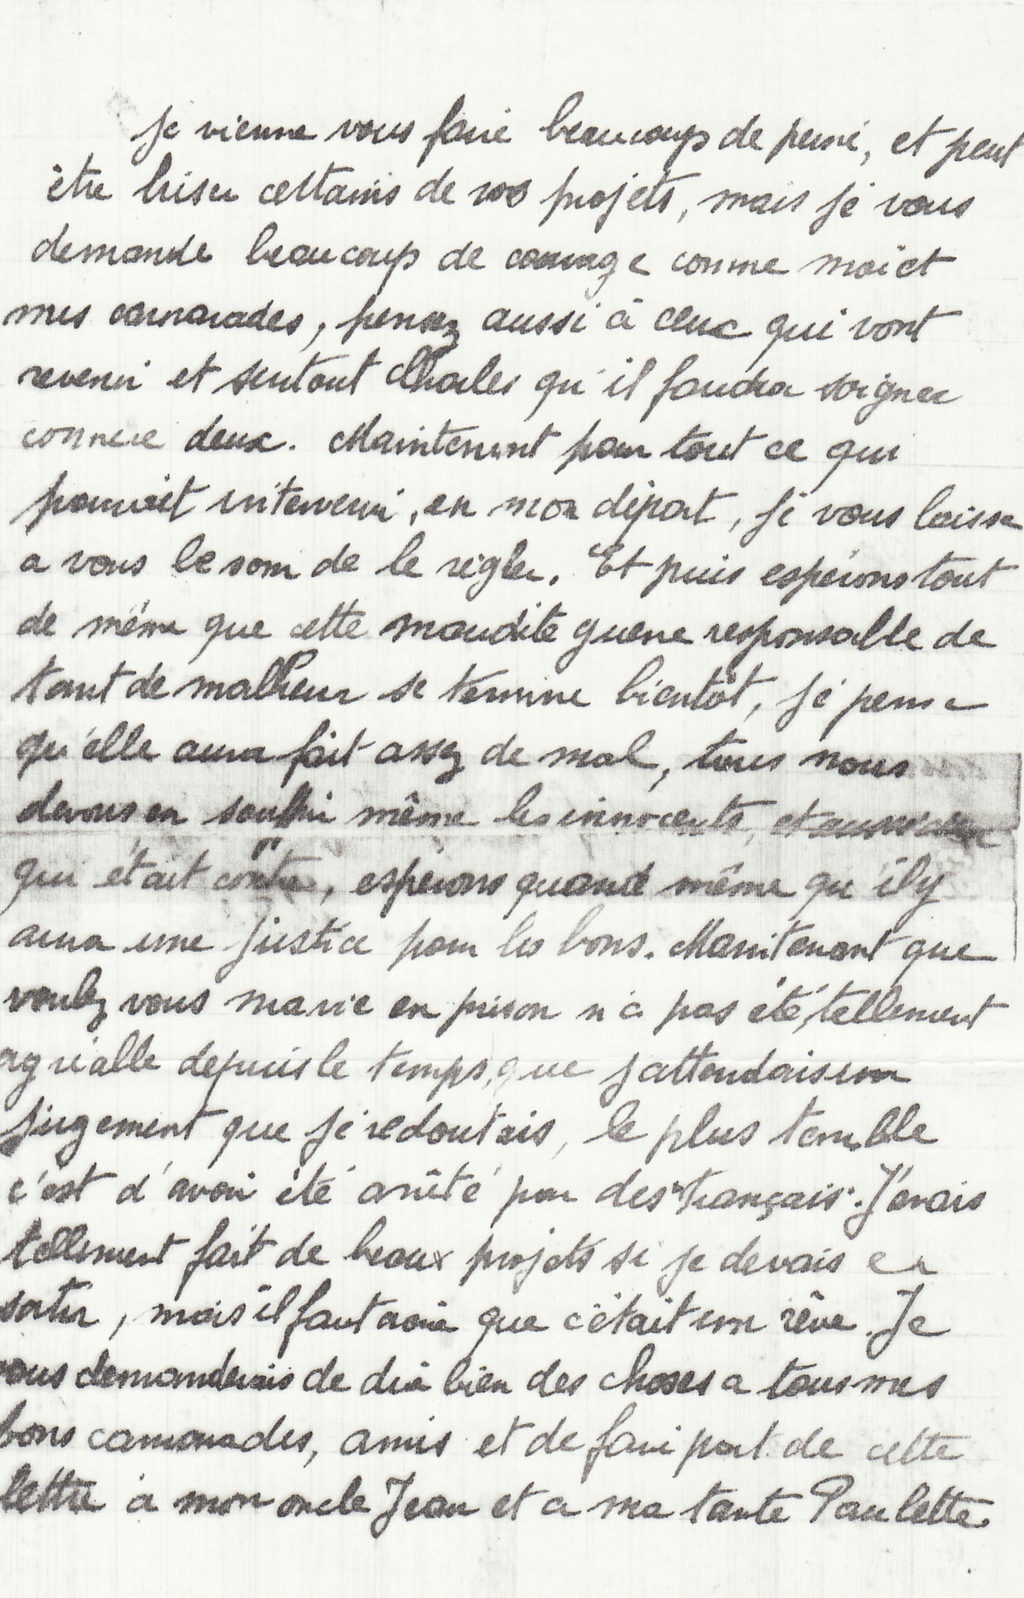 Je vienne vous faire beaucoup de peine, et peut
être briser certains de vos projets, mais je vous
demande beaucoup de courage comme moi et
mes camarades, pensez aussi à ceux qui vont
revenir et surtout Charles qu'il faudra soigner
comme deux. Maintenant pour tout ce qui
pourrait intervenir, en mon départ, je vous laisse
a vous le soin de le régler. Et puis espérons tout
de même que cette maudite guerre responsable de
tant de malheur se termine bientôt, je pense
qu'elle aura fait assez de mal, tous nous
devons en souffrir même les innocents, et
qui était contre, espérons quand même qu'il y
aura une justice pour les bons. Maintenant que
voulez vous ma vie en prison n'a pas été tellement
agréable depuis le temps, que j'attendais un
jugement que je redoutais, le plus terrible
c'est d'avoir été arrêté par des "français". J'avais
tellement fait de beaux projets si je devais en
sortir, mais il faut croire que c'était un rêve. Je
vous demanderais de dire bien des choses a tous mes
bons camarades, amis et de faire part de cette
lettre à mon oncle Jean et a ma tante Paulette.